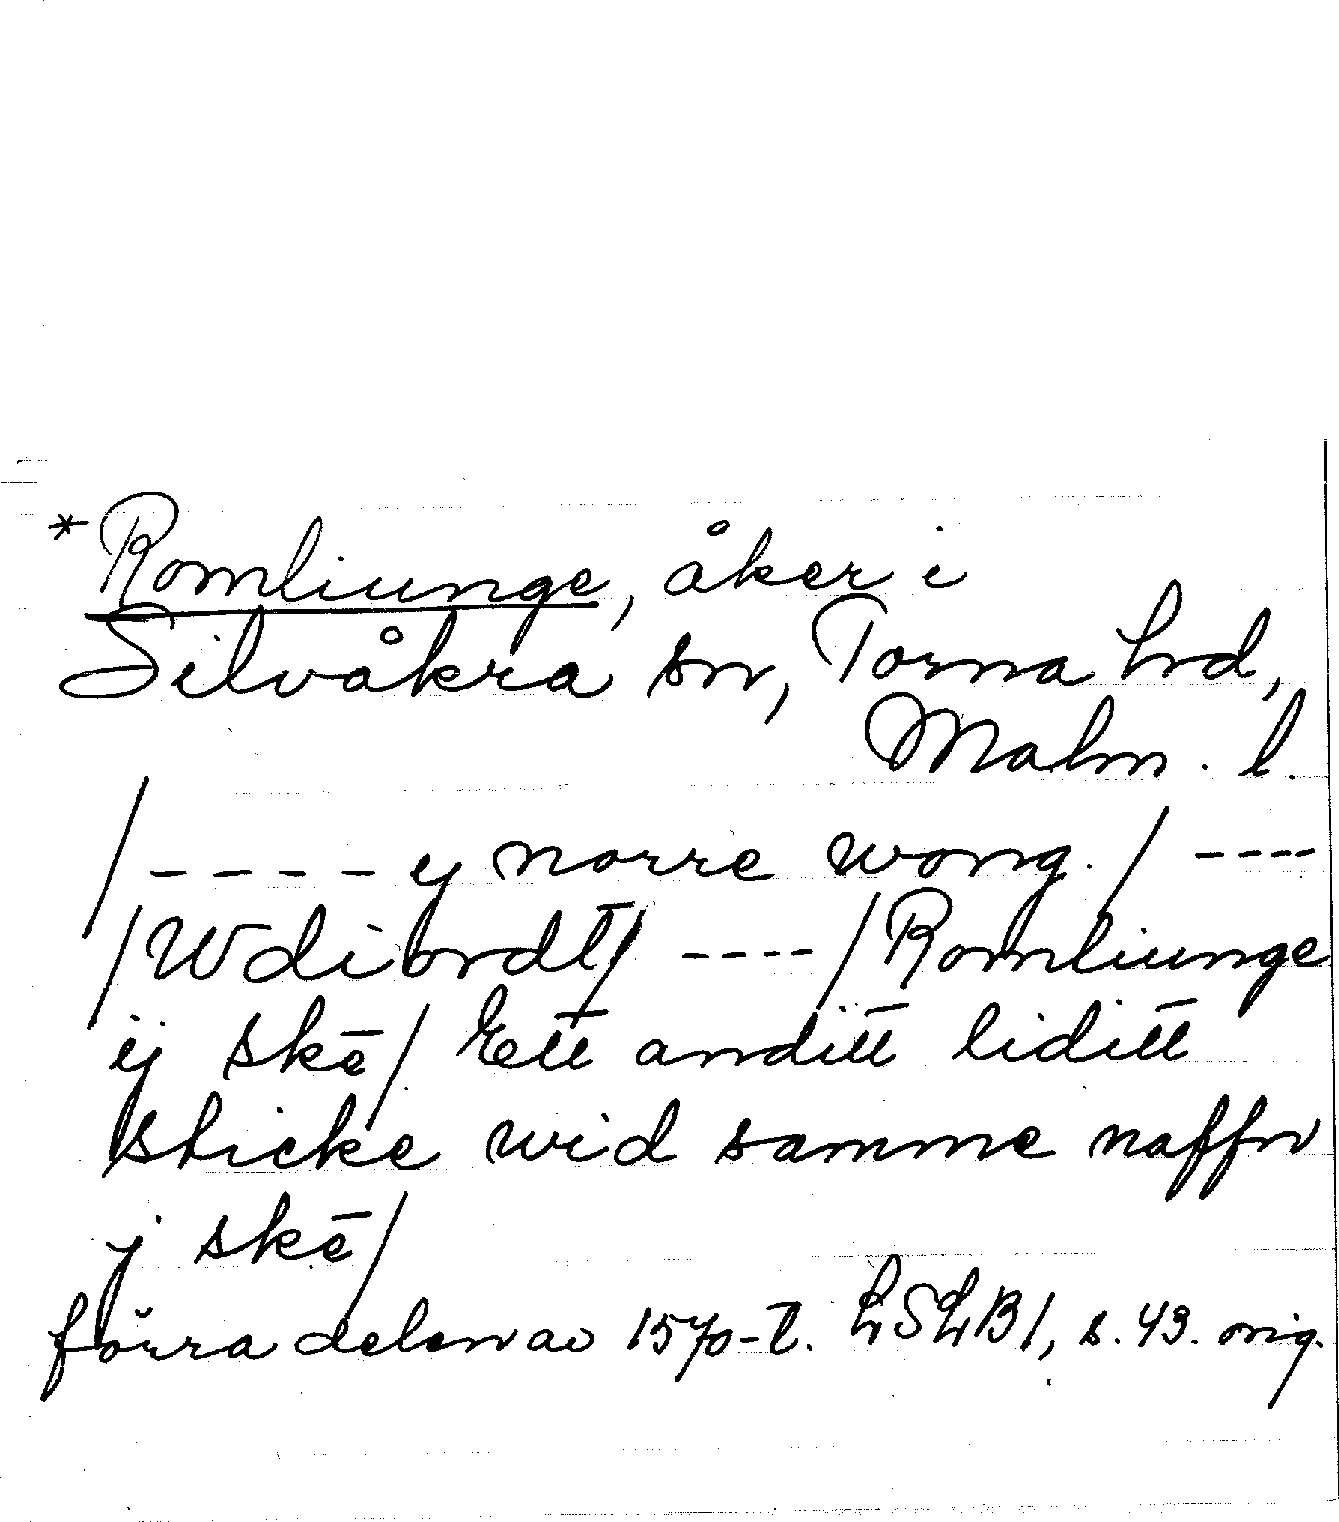 *Romliunge, åker i
Silvåkra sn, Torna hrd,
Malm. l.
/ - - - - ÿ norre wong. / - - - -
/ Wdiordtt / - - - - / Romliunge
ÿ skē / Ett anditt liditt
sticke wid samme naffn
j skē /
förra delen av 1570-t. LSLB I, s. 43. orig.